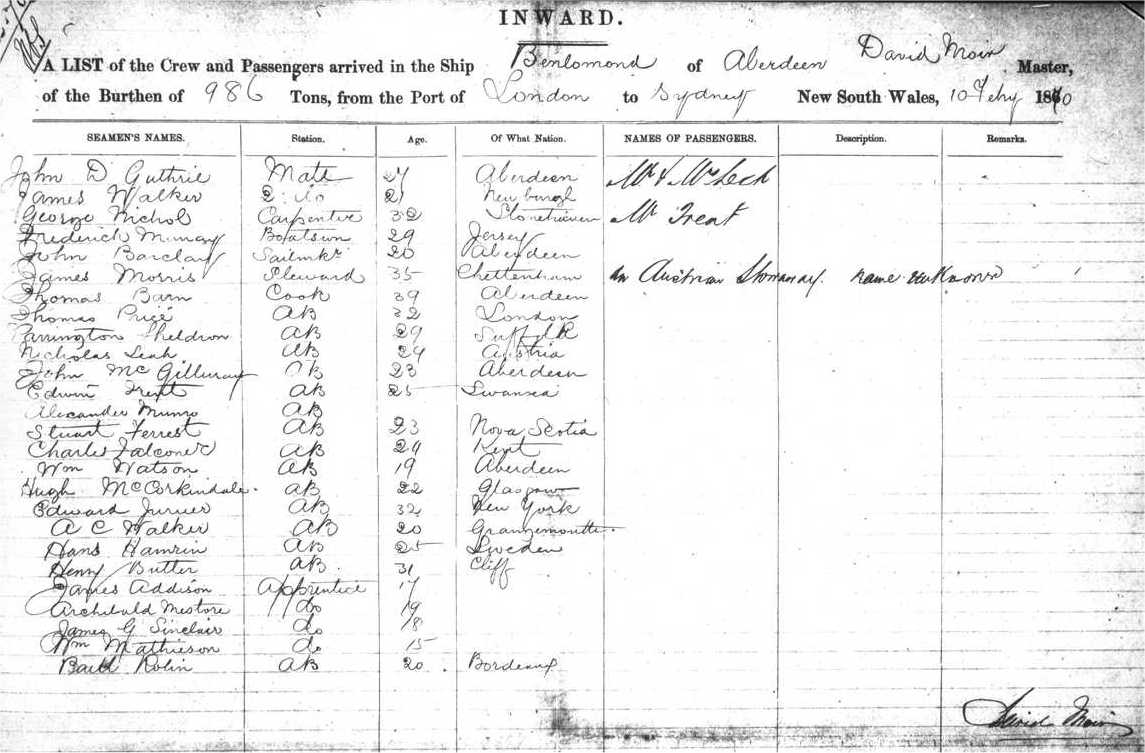 INWARD.
A LIST of the Crew and Passengers arrived in the Ship Benlomond of Aberdeen David Moir Master,
of the Burthen of 986 Tons, from the Port of London to Sydney New South Wales, 10 Feby 1870
SEAMEN'S NAMES. Station. Age. Of What Nation. NAMES OF PASSENGERS. Description. Remarks.
John D Guthrie Mate 27 Aberdeen Mr &
James Walker 2: do 21 Newburgh
George Nichol Carpenter 32 Stonehaven Mr Treat
Frederick Murray Boatswn 29 Jersey
John Barclay Sailmkr 20 Aberdeen
James Morris Steward 35 Cheltenham An Austrian Stowaway. name unknown
Thomas Barn Cook 39 Aberdeen
Thomas Price AB 32 London
Parrington Sheldron AB 29 Suffolk
Nicholas Leah AB 29 Austria
John McGillivray AB 23 Aberdeen
Edwin Trent AB 25 Swansea
Alexander Munro AB
Stuart Ferrest AB 23 Nova Scotia
Charles Falconer AB 29 Kent
Wm Watson AB 19 Aberdeen
Hugh McCorkindale. AB 22 Glasgow
Edward Turner AB 32 New York
A C Walker AB 20 Grangemouth
Hans Hamrin AB 25 Sweden
Henry Butter AB 31 Cliff
James Addison Apprentice 17
Archibald Mestore do 19
James G Sinclair do 18
Wm Mathieson do 15
Rolin AB 20 Bordeaux
David Moir